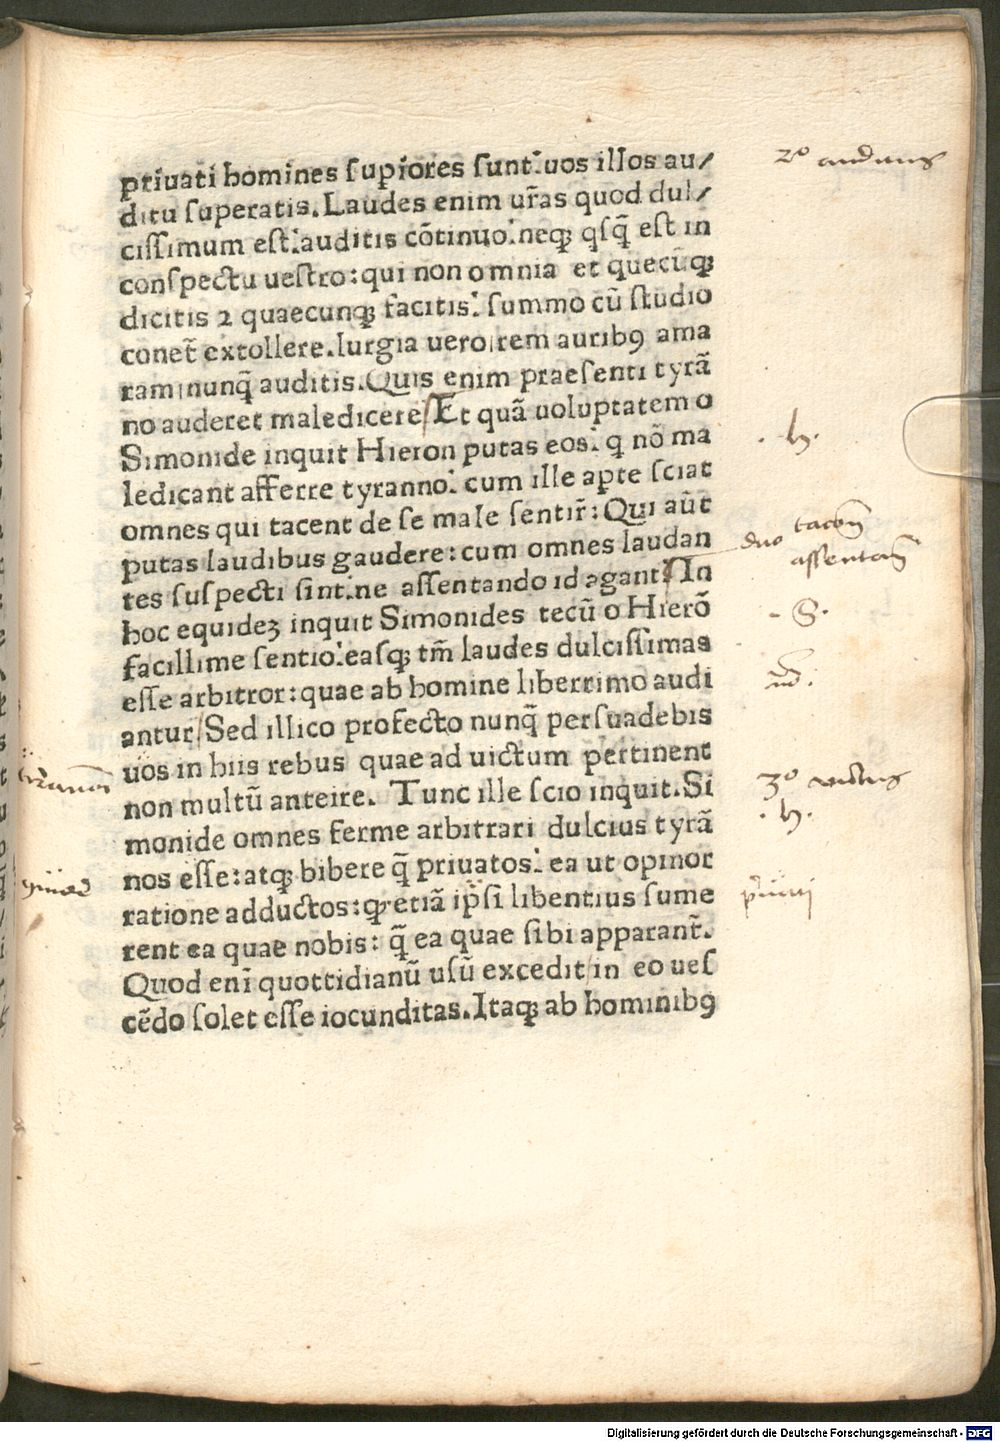 priuati homines supiores sunt:uos illos au/
ditu superatis. Laudes enim ur̃as quod dul/
cissimum est:auditis cõtinuo:neqꝫ qsq̃ est in
conspectu uestro:qui non omnia et quecũqꝫ
dicitis ⁊ quaecunqꝫ facitis: summo cũ studio
conet̃ extollere.Iurgia uero rem auribꝰ ama
ram nunq̃ auditis.Quis enim praesenti tyrã
no auderet maledicere/Et quã uoluptatem o
Simonide inquit Hieron putas eos. q nõ ma
ledicant afferre tyranno: cum ille apte sciat
omnes qui tacent de se male sentir̃: Qui aũt
putas laudibus gaudere:cum omnes laudan
tes suspecti sint:ne assentando id agant? In
hoc equideꝫ inquit Simonides tecũ o Hierõ
facillime sentio:easqꝫ tm̃ laudes dulcissimas
esse arbitror:quae ab homine liberrimo audi
antur/Sed illico profecto nunq̃ persuadebis
uos in hiis rebus quae ad uictum pertinent
non multũ anteire. Tunc ille scio inquit.Si
monide omnes ferme arbitrari dulcius tyrã
nos esse:atqꝫ bibere q̃ priuatos: ea ut opinor
ratione adductos:qꝫ etiã ip̃si libentius sume
rent ea quae nobis: q̃ ea quae sibi apparant̃.
Quod enĩ quottidianũ usũ excedit/in eo ues
cẽdo solet esse iocunditas.Itaqꝫ ab hominibꝰ
2º auditus
.h.
duo
.S.
3º uictus
.h.
Digitalisierung gefördert durch die Deutsche Forschungsgemeinschaft - DFG